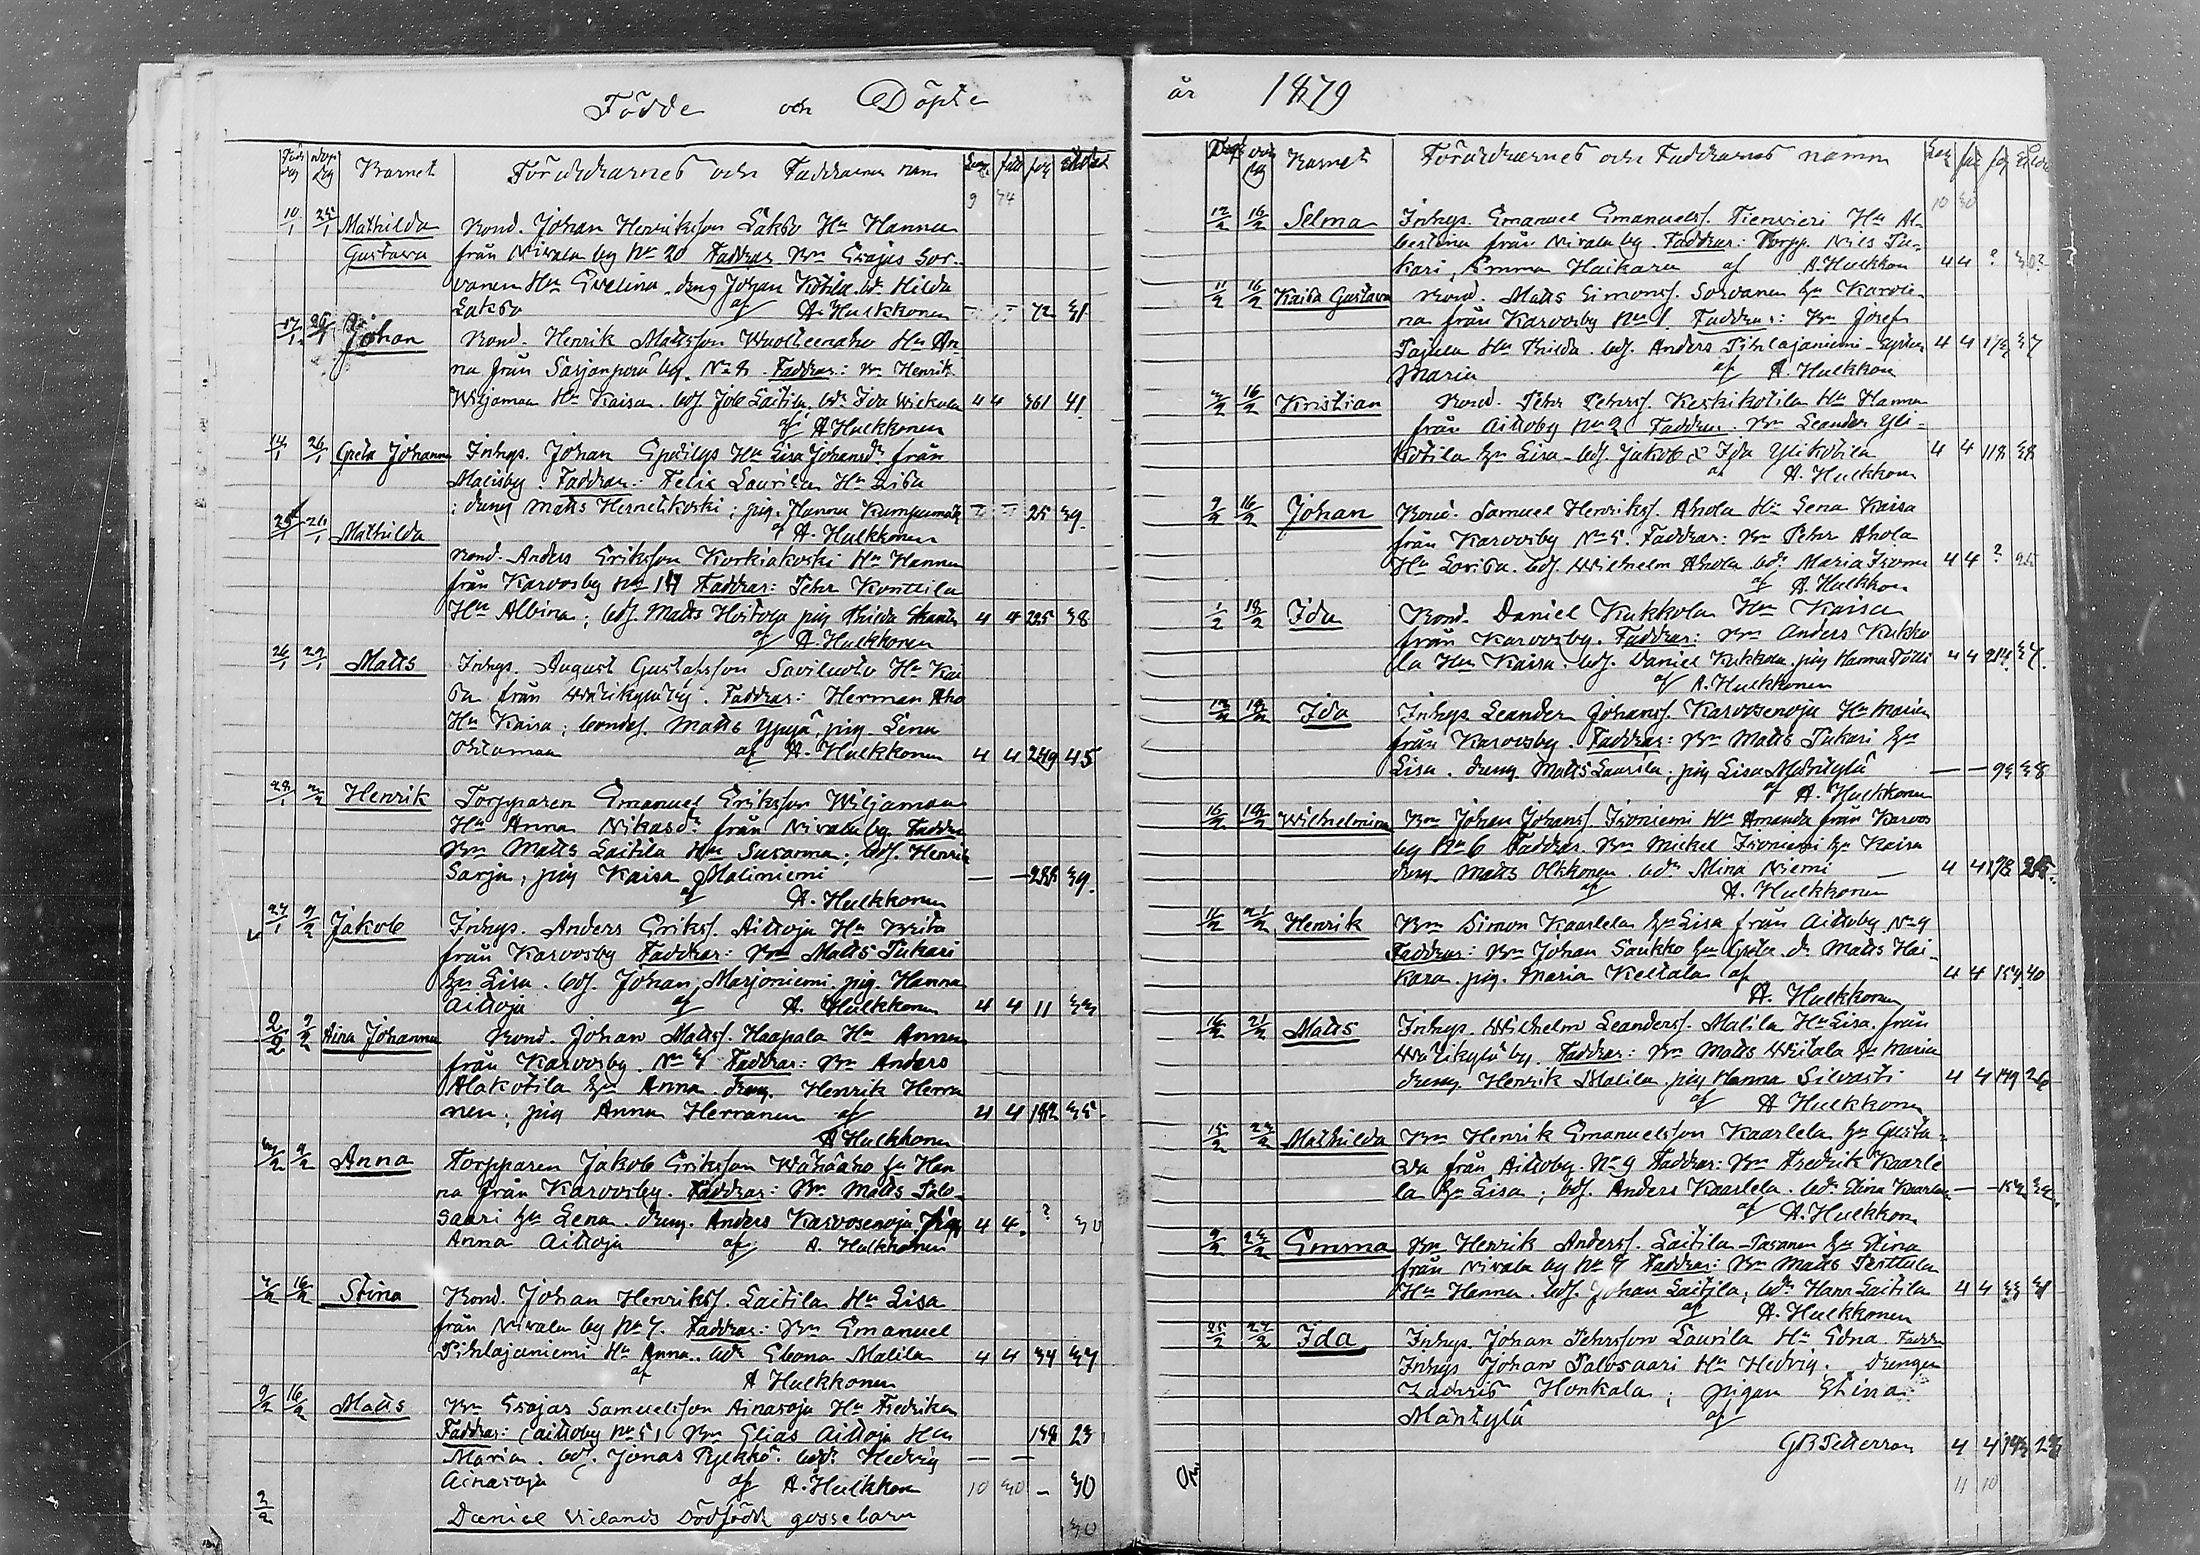 Födde och Döpte
Barnet Föräldrarnes och Faddrarnes namn
9 74
10/1 25/1 Mathilda Bond. Johan Henriksson Sakso Hu Hanna
Gustava från Nivala by No 20 Faddrar Bn Esajas Sor-
vanen Hu Evelina. dreng Johan Kotila. bdr Hilda
Sakso af A. Hulkkonen 72 31
17/1 Johan Bond. Henrik Mattsson Wuolteenaho Hu An-
na från Sarjanperä by. No 8. Faddrar: Bn Henrik
Wiljamaa Hu Kaisa. bdf Job Laitila, bdr Ida 4 4 361 41
af A Hulkkonen
14/1 26/1 Greta Johanna Inhys. Johan Hu Lisa Johansdr från
Malisby. Faddrar: Felix Laurila Hu Lisa
; dreng Matts Hernetkoski; pig. Hanna 25 39
af A. Hulkkonen
25/1 26/1 Mathilda
Bond. Anders Eriksson Korkiakoski Hu Hanna
från Karvosby No 14 Faddrar: Pehr Konttila
Hu Albina; bdf. Matts pig Thilda 4 4 225 38
af A Hulkkonen
26/1 29/1 Matts Inhys. August Gustafsson Saviluoto Hu Kai
sa från by. Faddrar: Herman Aho
Hu Kaisa; bondes. Matts Yppyä, pig. Lena
Ohtamaa af A. Hulkkonen 4 4 249 45
28/1 2/2 Henrik Torpparen Emanuel Eriksson Wiljamaa
Hu Anna Nikasdr från Nivala by. Faddrar
Bn Matts Laitila Hu Susanna; bdf. Henrik
Sarja; pig Kaisa Maliniemi — — 288 39.
af A. Hulkkonen
27/1 9/2 Jakob Inhys. Anders Eriksf. Aittoja Hu Brita
från Karvosby Faddrar: Bn Matts Tukari
Hu Lisa. bdf. Johan Marjoniemi. pig. Hanna
Aittoja af A. Hulkkonen 4 4 11 33
2/2 9/2 Aina Johanna Bond. Johan Mattsf. Haapala Hu Anna
från Karvosby. No 4 Faddrar: Bn Anders
Alakotila Hu Anna. dreng. Henrik Herra
nen; pig Anna Herranen af 4 4 182 35.
A Hulkkonen
9/2 Anna Torpparen Jakob Eriksson Wähäaho Hu Han
na från Karvosby. Faddrar: Bn Matts Palo-
saari Hu Lena. dreng. Anders Karvosenoja. pig 4 4 ? 30
Anna Aittoja af A. Hulkkonen
7/2 16/2 Stina Bond. Johan Henriksf. Laitila Hu Lisa
från Nivala by No 7. Faddrar: Bn Emanuel
Pihlajaniemi Hu Anna. bdr Malila 4 4 34 37
af A Hulkkonen
9/2 16/2 Matts Bn Esajas Samuelsson Ainasoja Hu Fredrika
Faddrar: (Aittoby No 5) Bn Elias Aittoja Hu 138 23
Maria. bdf. Jonas Pylkkö. bdr Hedvig — —
Ainasoja af A. Hulkkonen 10 30 – 30
2/2 Daniel Vielands Dödfödt gossebarn 30
år 1879
Barnet Föräldrarnes och Faddrarnes namn
10 30
12/2 16/2 Selma Inhys. Emanuel Emanuelsf. Tienvieri Hu Al-
bertina från Nivala by. Faddrar: Torpp. Nils Tu-
kari, Emma Haikara af A. Hulkkon 4 4 ? 30?
11/2 16/2 Kaisa Gustava Bond. Matts Simonsf. Sorvanen Hu Karoli-
na från Karvosby No 1. Faddrar: Bn Josef
Pajula Hu Thilda. bdf. Anders Pihlajaniemi 4 4 37
Maria af A. Hulkkon
16/2 Kristian Bond. Pehr Pehrsf. Keskikotila Hu Hanna
från Aittoby No 2. Faddrar. Bn Leander Yli-
kotila Hu Lisa. bdf Jakob, Ida Ylikotila 4 4 118 38
af A. Hulkkon
9/2 16/2 Johan Bond. Samuel Henriksf. Ahola Hu Lena Kaisa
från Karvosby No 5. Faddrar: Bn Pehr Ahola
Hu Lovisa. bdf. Wilhelm Ahola bdr Maria 4 4 ?
af A. Hulkkon
1/2 18/2 Ida Bond. Daniel Kukkola Hu Kaisa
från Karvosby. Faddrar: Bn Anders Kukko
la Hu Kaisa. bdf. Daniel Kukkola. pig Hanna 4 4 214 37.
af A. Hulkkonen
18/2 Ida Inhys Leander Johansf. Karvosenoja Hu Maria
från Karvosby. Faddrar: Bn Matts Tukari Hu
Lisa. dreng Matts Laurila; pig Lisa Mäntylä — — 93 38
af A. Hulkkonen
16/2 18/2 Wilhelmina Bn Johan Johansf. Isoniemi Hu Amanda från Karvos
by No 6 Faddrar. Bn Mickel Isoniemi Hu Kaisa
dreng. Matts Olkkonen. bdr Mina Niemi — 4 4 178
af A. Hulkkonen
11/2 21/2 Henrik Bn Simon Kaarlela Hu Lisa från Aittoby No 9
Faddrar: Bn Johan Saukko Hu Greta. dr Matts Hai-
kara. pig. Maria Keltala af 4 4 154 40
A. Hulkkonen
16/2 21/2 Matts Inhys. Wilhelm Leandersf. Malila Hu Lisa. från
by. Faddrar: Bn Matts Hu Maria
dreng Henrik Malila pig Hanna Silvasti 4 4 149 26
af A Hulkkonen
15/2 23/2 Mathilda Bn Henrik Emanuelsson Kaarlela Hu Gusta-
va från Aittoby. No 9 Faddrar: Bn Fredrik Kaarle
la Hu Lisa; bdf. Anders Kaarlela. bdr Stina Kaarlela — —
af A. Hulkkon
9/2 23/2 Emma Bn Henrik Andersf. Laitila-Pasanen Hu Stina
från Nivala by No 7 Faddrar: Bn Matts Perttula
Hu Hanna. bdf. Johan Laitila, bdr Hana Laitila 4 4 33 31
af A. Hulkkonen
25/2 27/2 Ida Inhys. Johan Pehrsson Laurila Hu Edna Faddr
Inhys Johan Palosaari Hu Hedvig. Drengen
Zachris Honkala; pigan Stina
Mäntylä af
GB Petterson 4 4 143 23
11 10